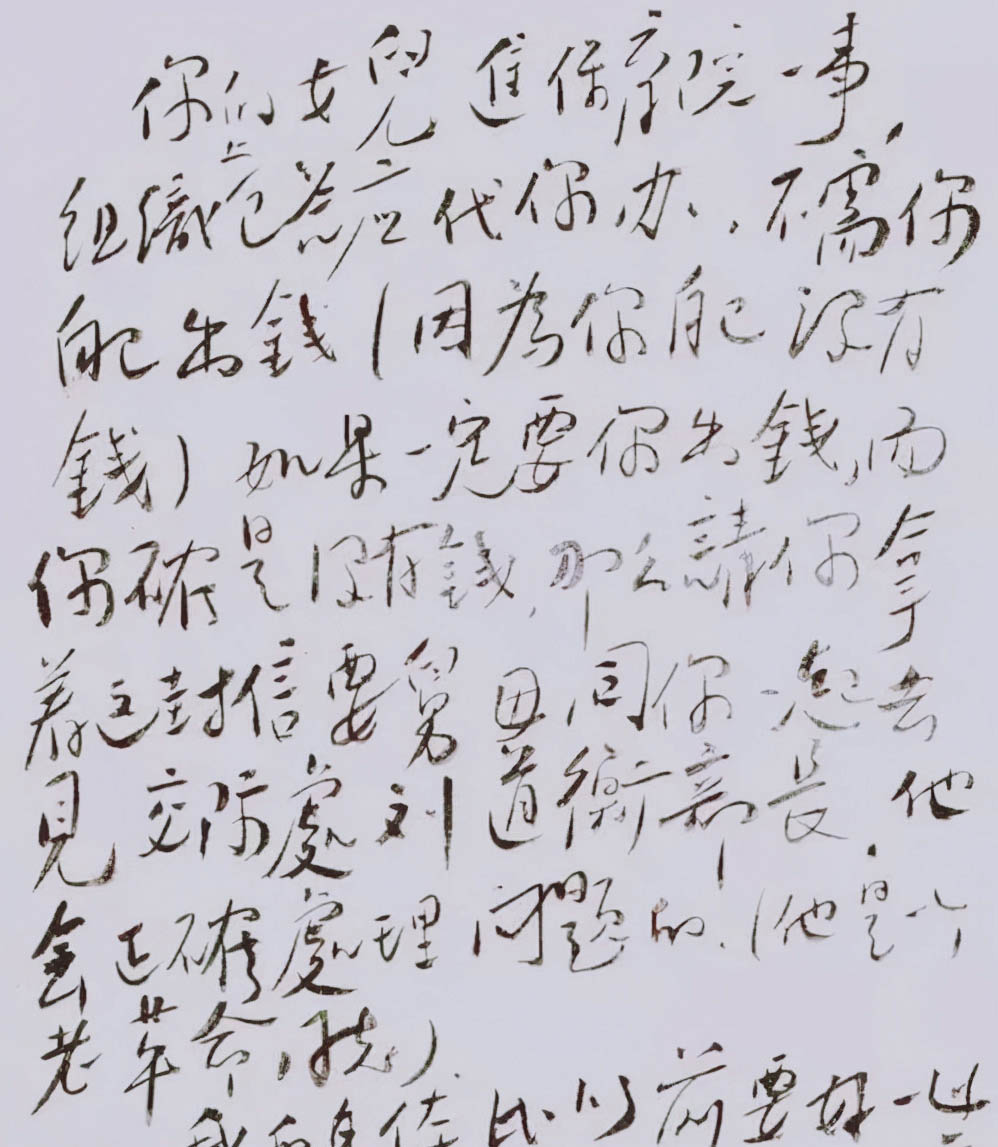 你的女兒進保育院一事,
組織上已答应代你办,不需你
自己出錢(因為你自己没有
錢)如果一定要你出錢,而
你確是没有錢,那么請你拿
着这封信要舅母同你一起去
見交际處刘道衡部長,他
会正確處理问題的.(他是个
老革命同志)
我的身体比以前要好一些